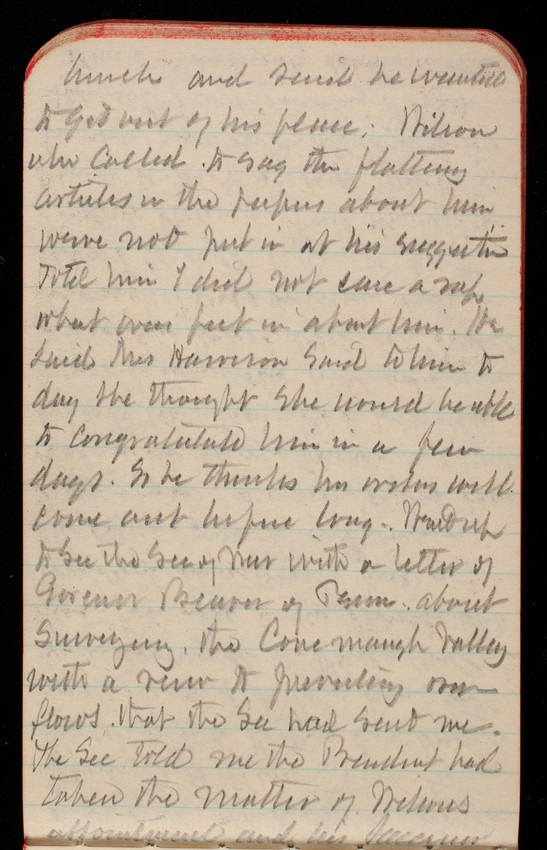 lunch and said he wanted
to get out of his place. Wilson
who called to say the flattering
articles in the papers about him
were not put in at his suggestion
I tell him I did not care a rap
what was put in about him. He
said Mrs Harrison said to him to
day she thought she would be able
to congratulate him in a few
days. So he thinks his orders will
come out before long. Went up
to see the Sec of War with a letter of
Govenor Beaver of Penn. about
Surveying the Conemaugh Valley
with a view to preventing over
flows that the Sec had sent me.
The Sec told me the President had
taken the matter of Wilsons
appointment and his